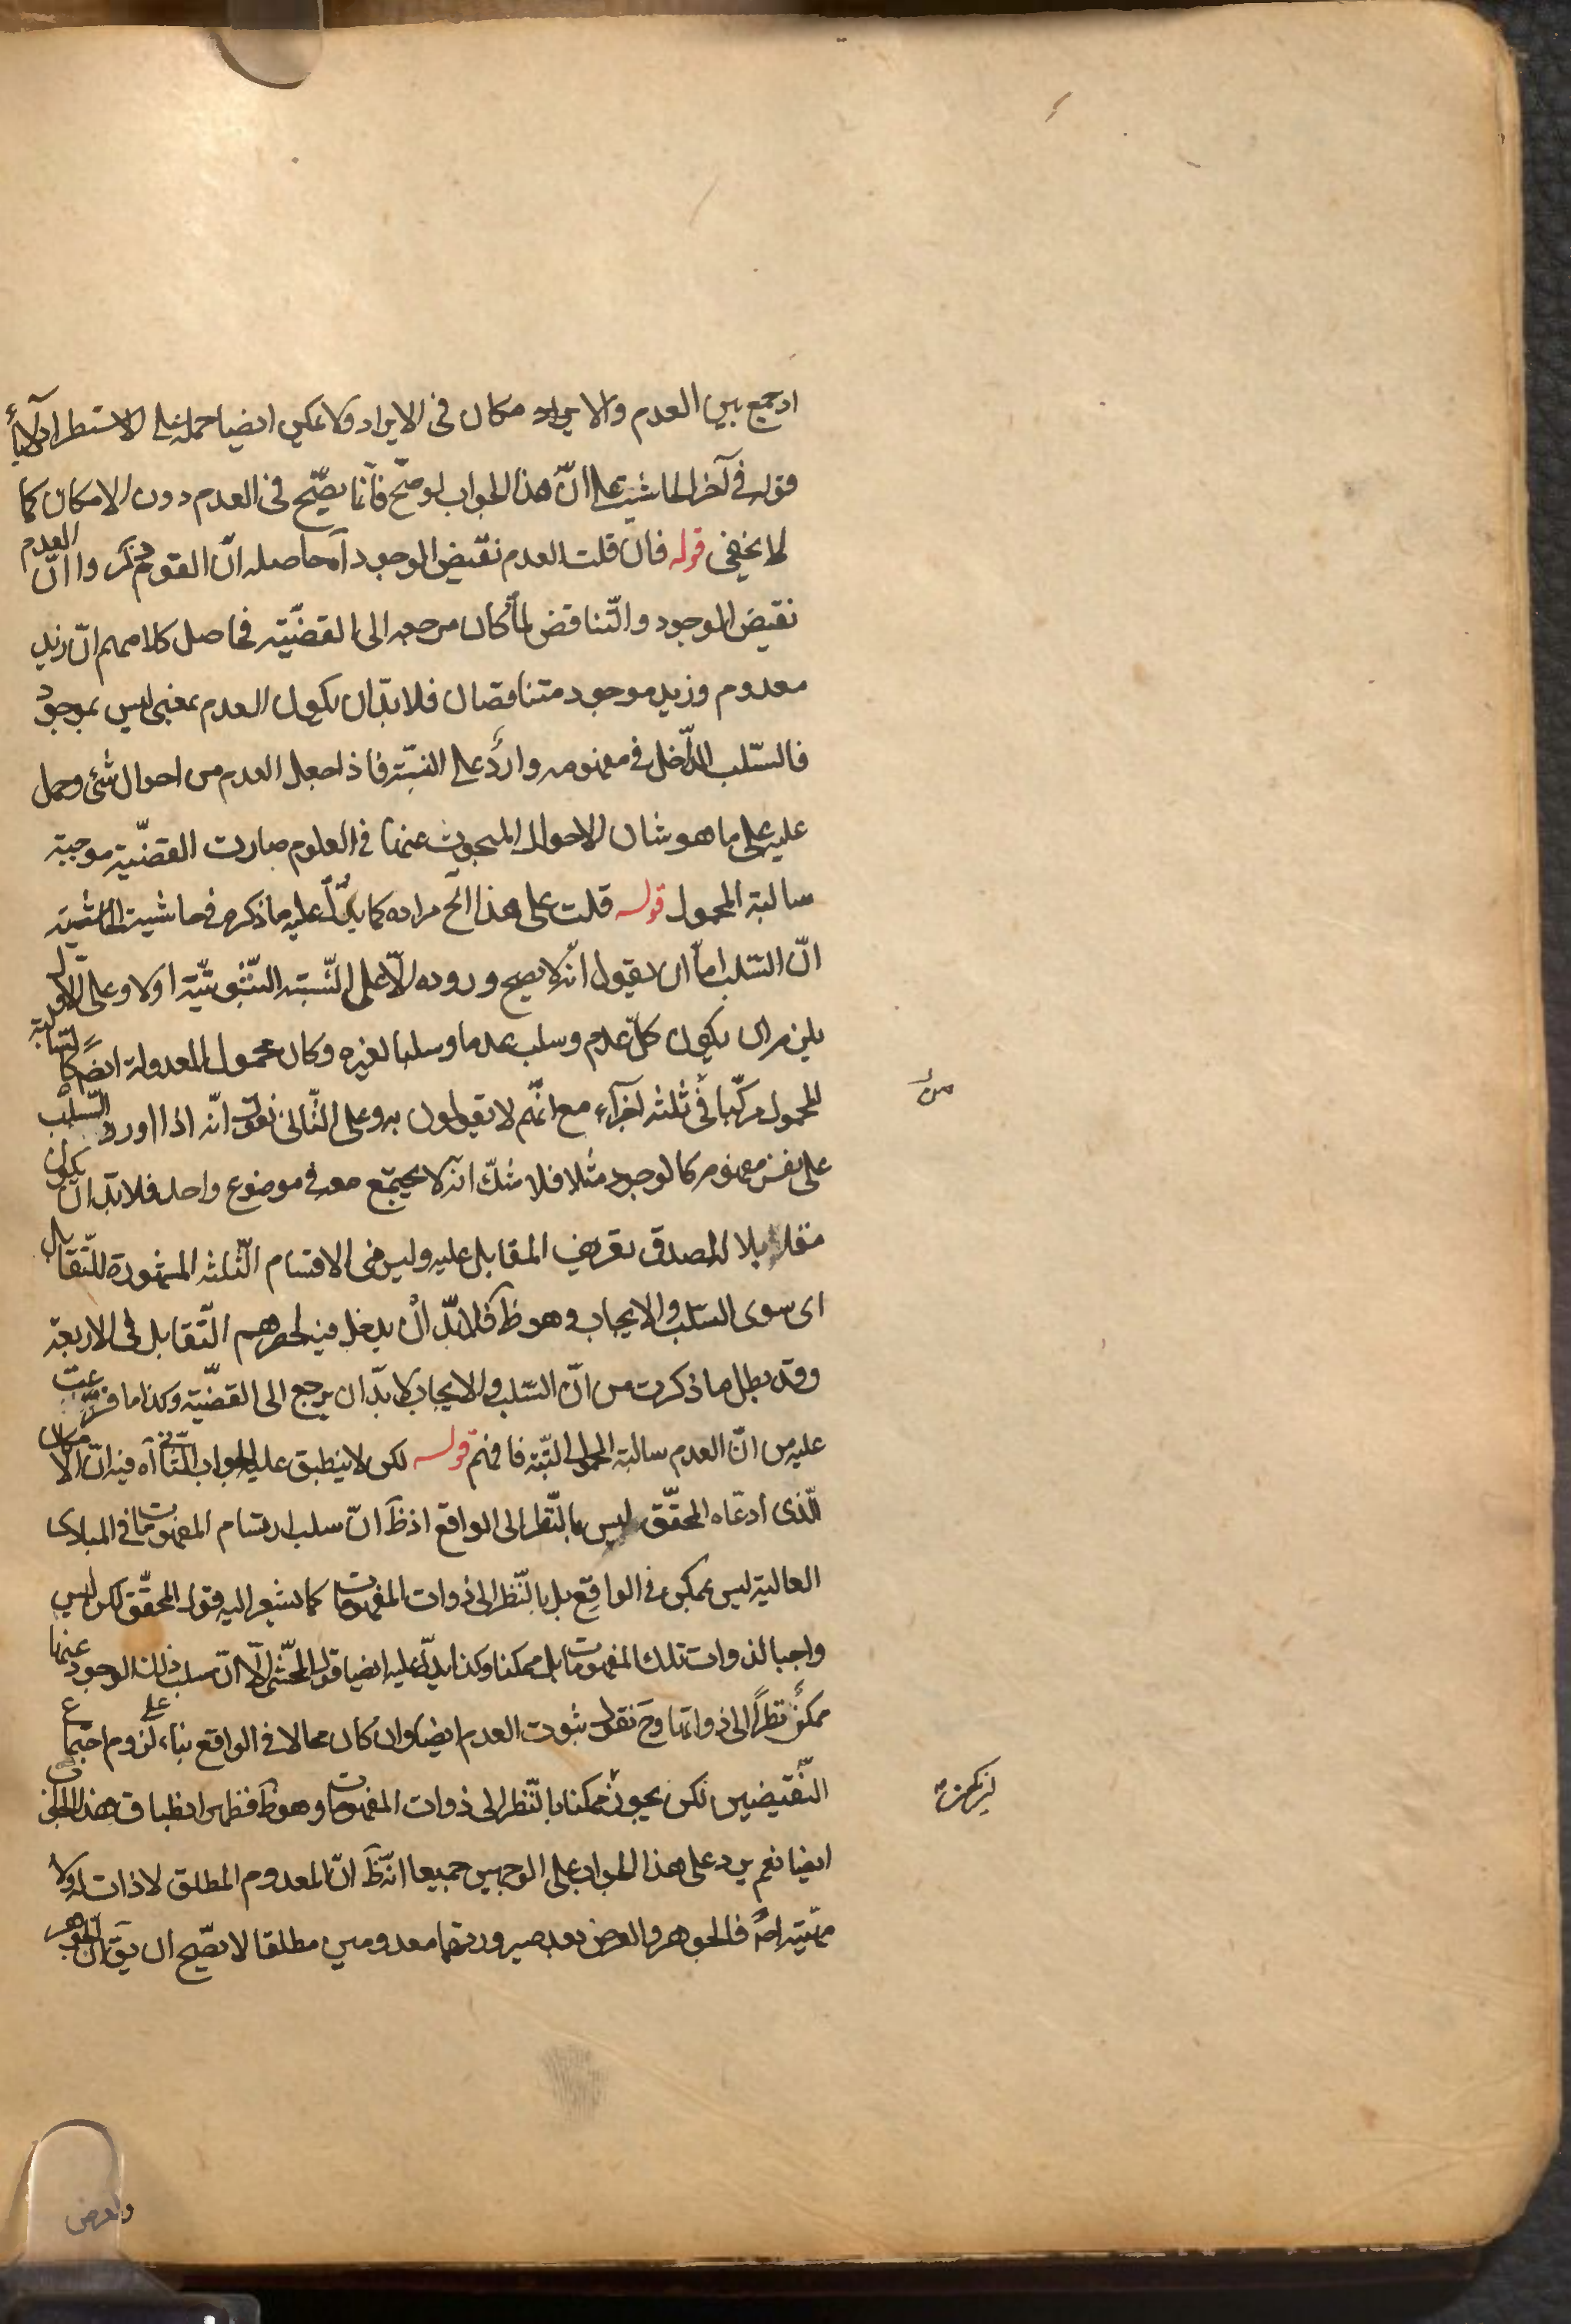 اذ جمع بين العدم والايراد مكان فى الايراد ولا يمكن ايضا حمله على الاستطراد لاباء
قوله فى آخر الحاشية على انّ هذا الجواب لو صحّ فانّما يصحّ فى العدم دون الامكان كما
لا يخفى قوله فان قلت العدم نقيض الموجود آه حاصله انّ القوم ذكروا انّ العدم
نقيض الموجود والتّناقض لمّا كان مرجعه الى القضيّة فحاصل كلامهم انّ زيد
معدوم وزيد موجود متناقضان فلا بدّ ان يكون العدم بمعنى ليس بموجود
فالسّلب الدّاخل فى مفهومه وارد على النسبة فاذا جعل العدم من احوال شئ وحمل
عليه على ما هو شان الاحوال المبحوث عنها فى العلوم صارت القضيّة موجبة
سالبة المحمول قوله قلت على هذا الخ مراده كما يدلّ عليه ما ذكره فى حاشية الحاشية
انّ السّلب امّا ان يقول انّه لا يصح وروده الّا على النّسبة الثّبوتيّة اولا وعلى الاول
يلزم ان يكون كلّ عدم وسلب عدما وسلبا لغيره وكان محمول المعدولة ايضا كالسّالبة
المحمول مركّبا فى ثلثه اجزآء مع انّهم لا يقولون به وعلى الثّانى نقول انّه اذا اورد السّلب
على نفس مفهوم كالوجود مثلا فلا شكّ انّه لا يجتمع معه فى موضوع واحد فلا بدّ ان يكون
مقابلا لصدق تعريف المقابل عليه وليس من الاقسام الثّلثه المشهورة للتّقابل
اى سوى السّلب والايجاب وهو ظ فلا بدّ ان يدخل فيه لحصرهم التّقابل فى الاربعة
وقد بطل ما ذكرت من انّ السّلب والايجاب لا بدّ ان يرجع الى القضيّة وكذا ما فرّعت
عليه من انّ العدم سالبة المحمول البتّة فافهم قوله لكن لا ينطبق عليه الجواب الثّانى آه فيه انّ الامكان
الّذى ادّعاه المحقّق ليس بالنّظر الى الواقع اذ ظ انّ سلب ارتسام المفهومات فى المبادى
العالية ليس بممكن فى الواقع بل بالنّظر الى ذوات المفهومات كما يشعر اليه قول المحقّق لكن ليس
واجبا لذوات تلك المفهومات بل ممكنا وكذا يدلّ عليه ايضا قول المحشّى الّا انّ سلب ذلك الوجود عنها
ممكن نظرا الى ذواتها وح نقول ثبوت العدم ايضا وان كان محالا فى الواقع بناء على لزوم اجتماع
النّقيضين لكن يجوز ممكنا بالنّظر الى ذوات المفهومات وهو ظ فظهر انطباق هذا الجواب
ايضا نعم يرد على هذا الجواب على الوجهين جميعا انّه ظ انّ المعدوم المطلق لا ذات له ولا
مهيّة اصلا فالجوهر والعرض بعد صيرورتهما معدومين مطلقا لا يصّح ان يق انّ الجوهر
من
والعرض